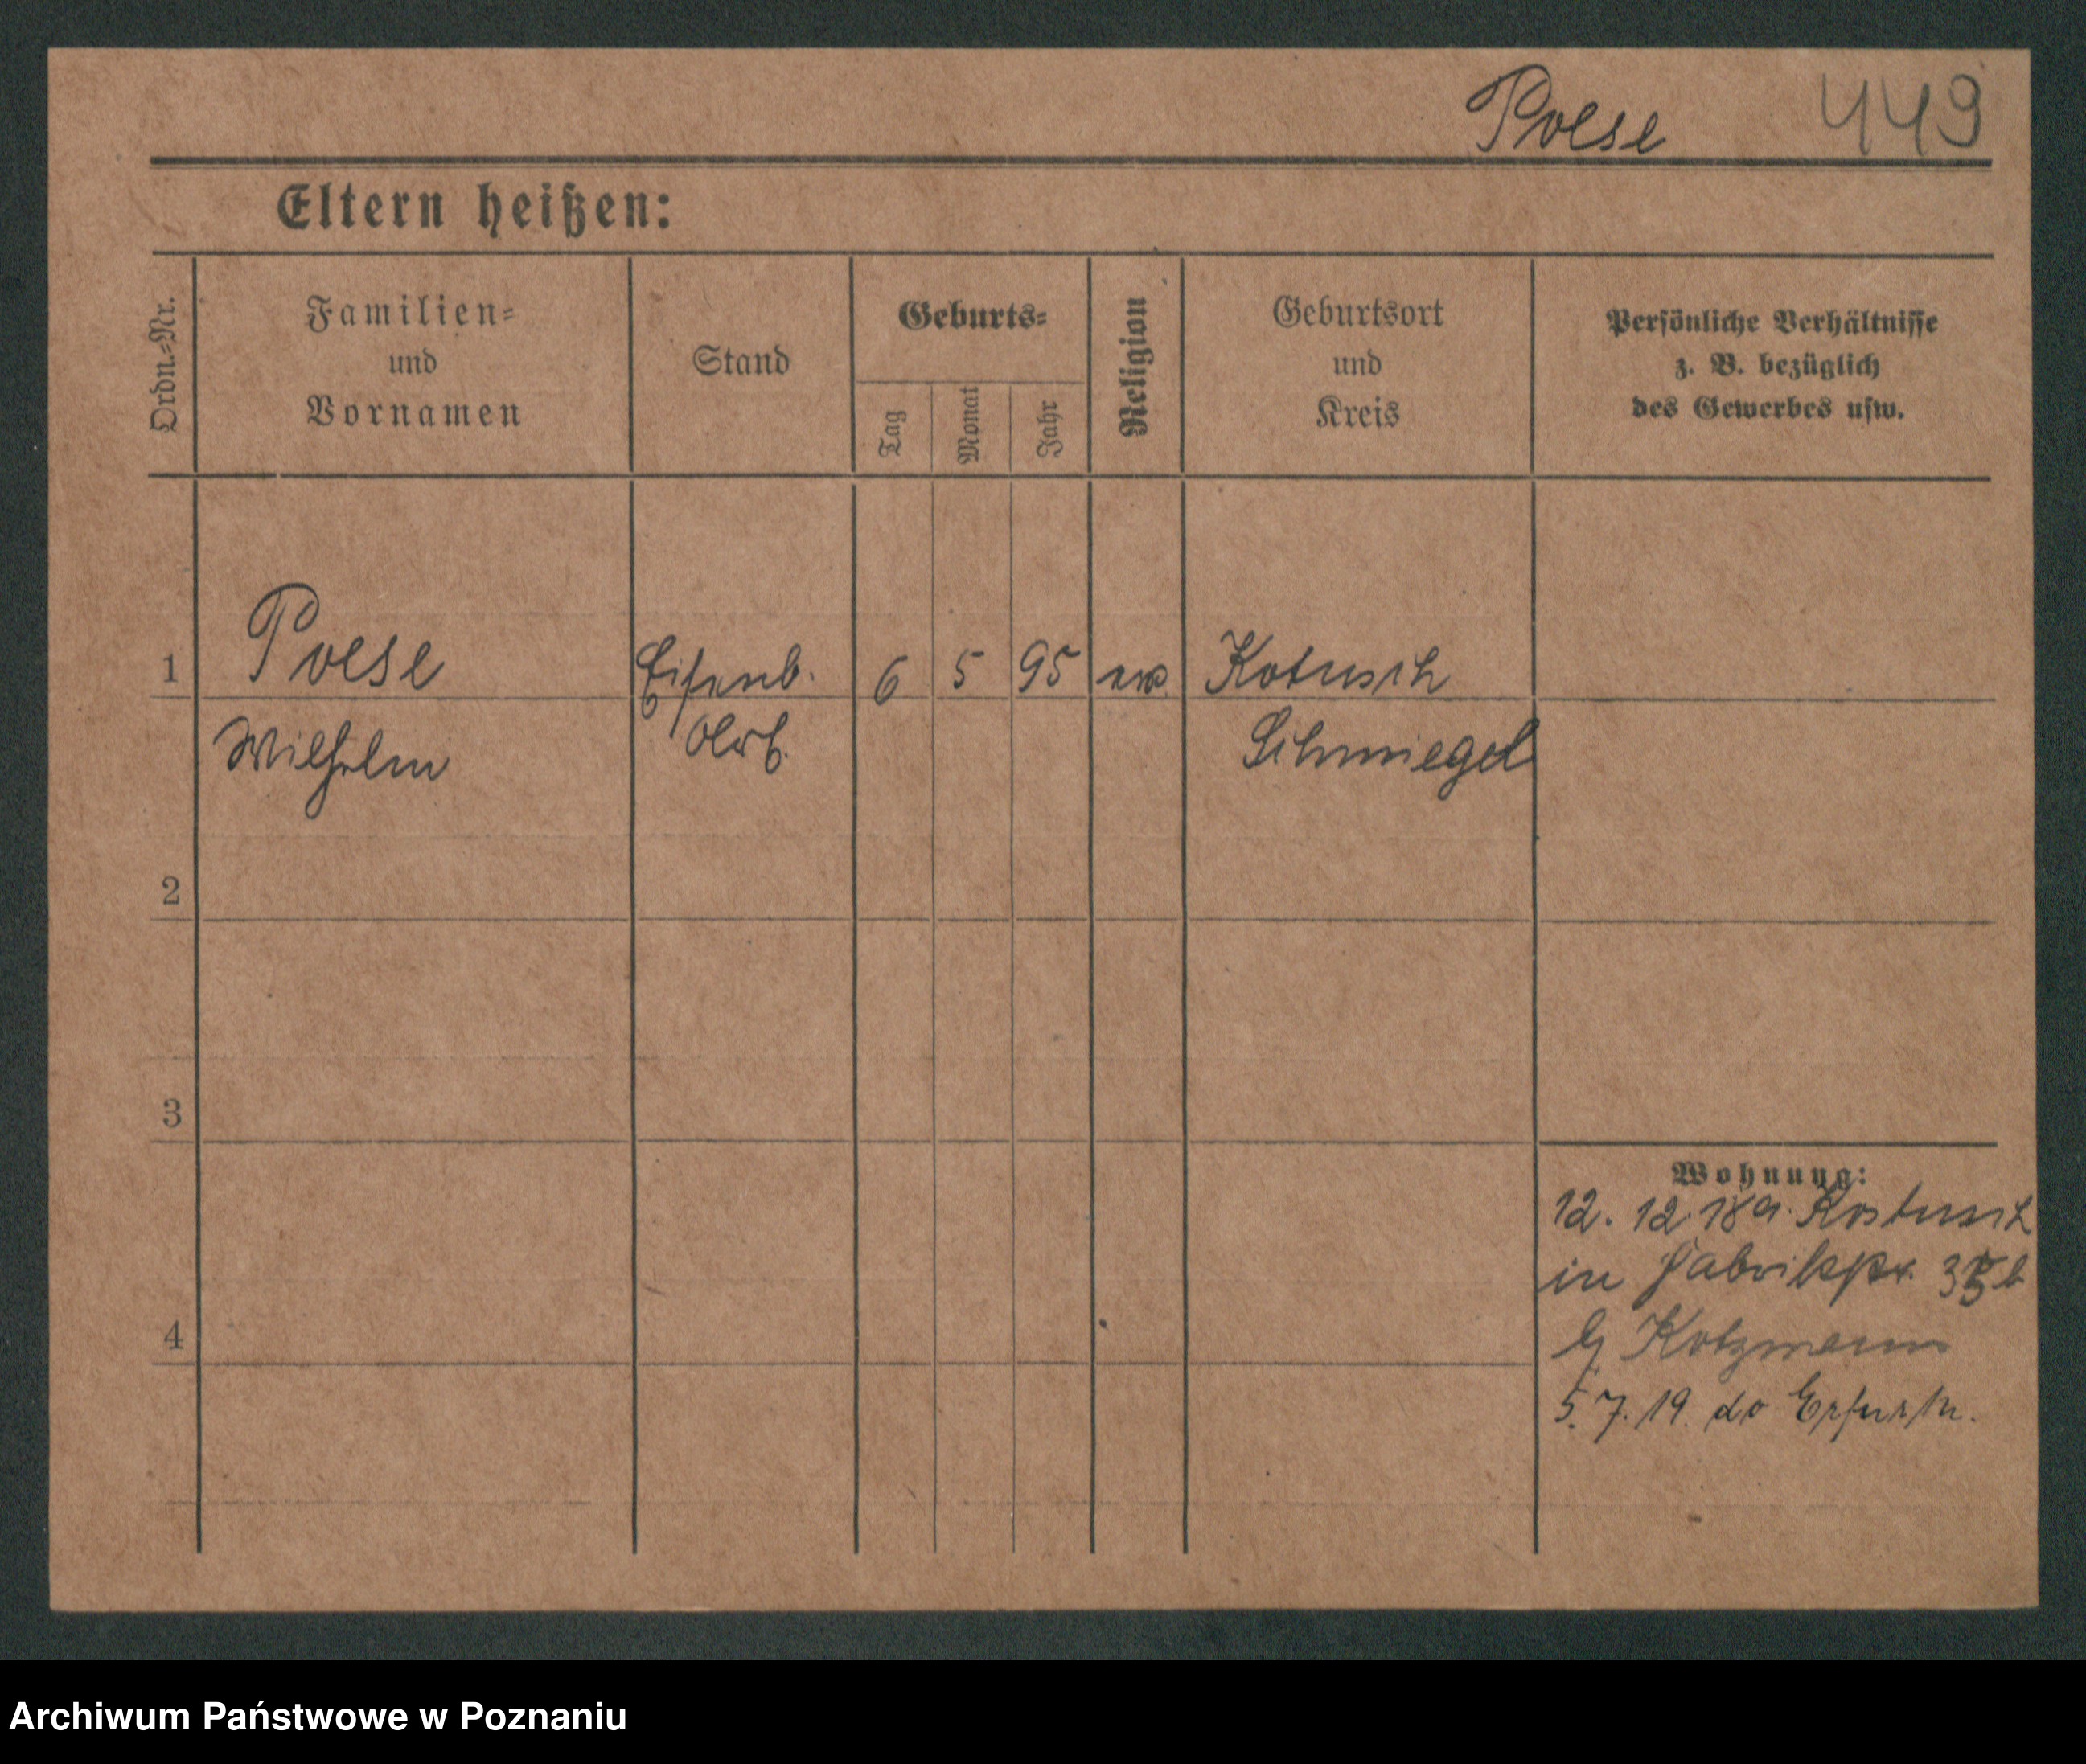 Poese 449
Eltern heißen:
Ordn.-Nr.
Familien-
und
Vornamen
Stand
Geburts-
Tag
Monat
Jahr
Religion
Geburtsort
und
Kreis
Persönliche Verhältnisse
z. B. bezüglich
des Gewerbes usw.
1 Poese Eisenb. 6 5 95 Kotusch
Wilhelm Arb. Schmiegel
2
3
Wohnung:
12. 12. 18 a. Kotusch
in Fabrikstr. 35 b
4
b/ Kotzmann
5. 7. 19. do Erfurt
Archiwum Państwowe w Poznaniu